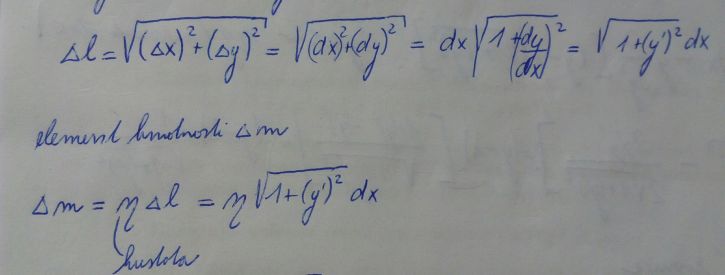 Δl = √((Δx)² + (Δy)²) = √((dx)² + (dy)²) = dx √(1 + (dy/dx)²) = √(1 + (y')²) dx
element hmotnosti Δm
Δm = η Δl = η √(1 + (y')²) dx
hustota